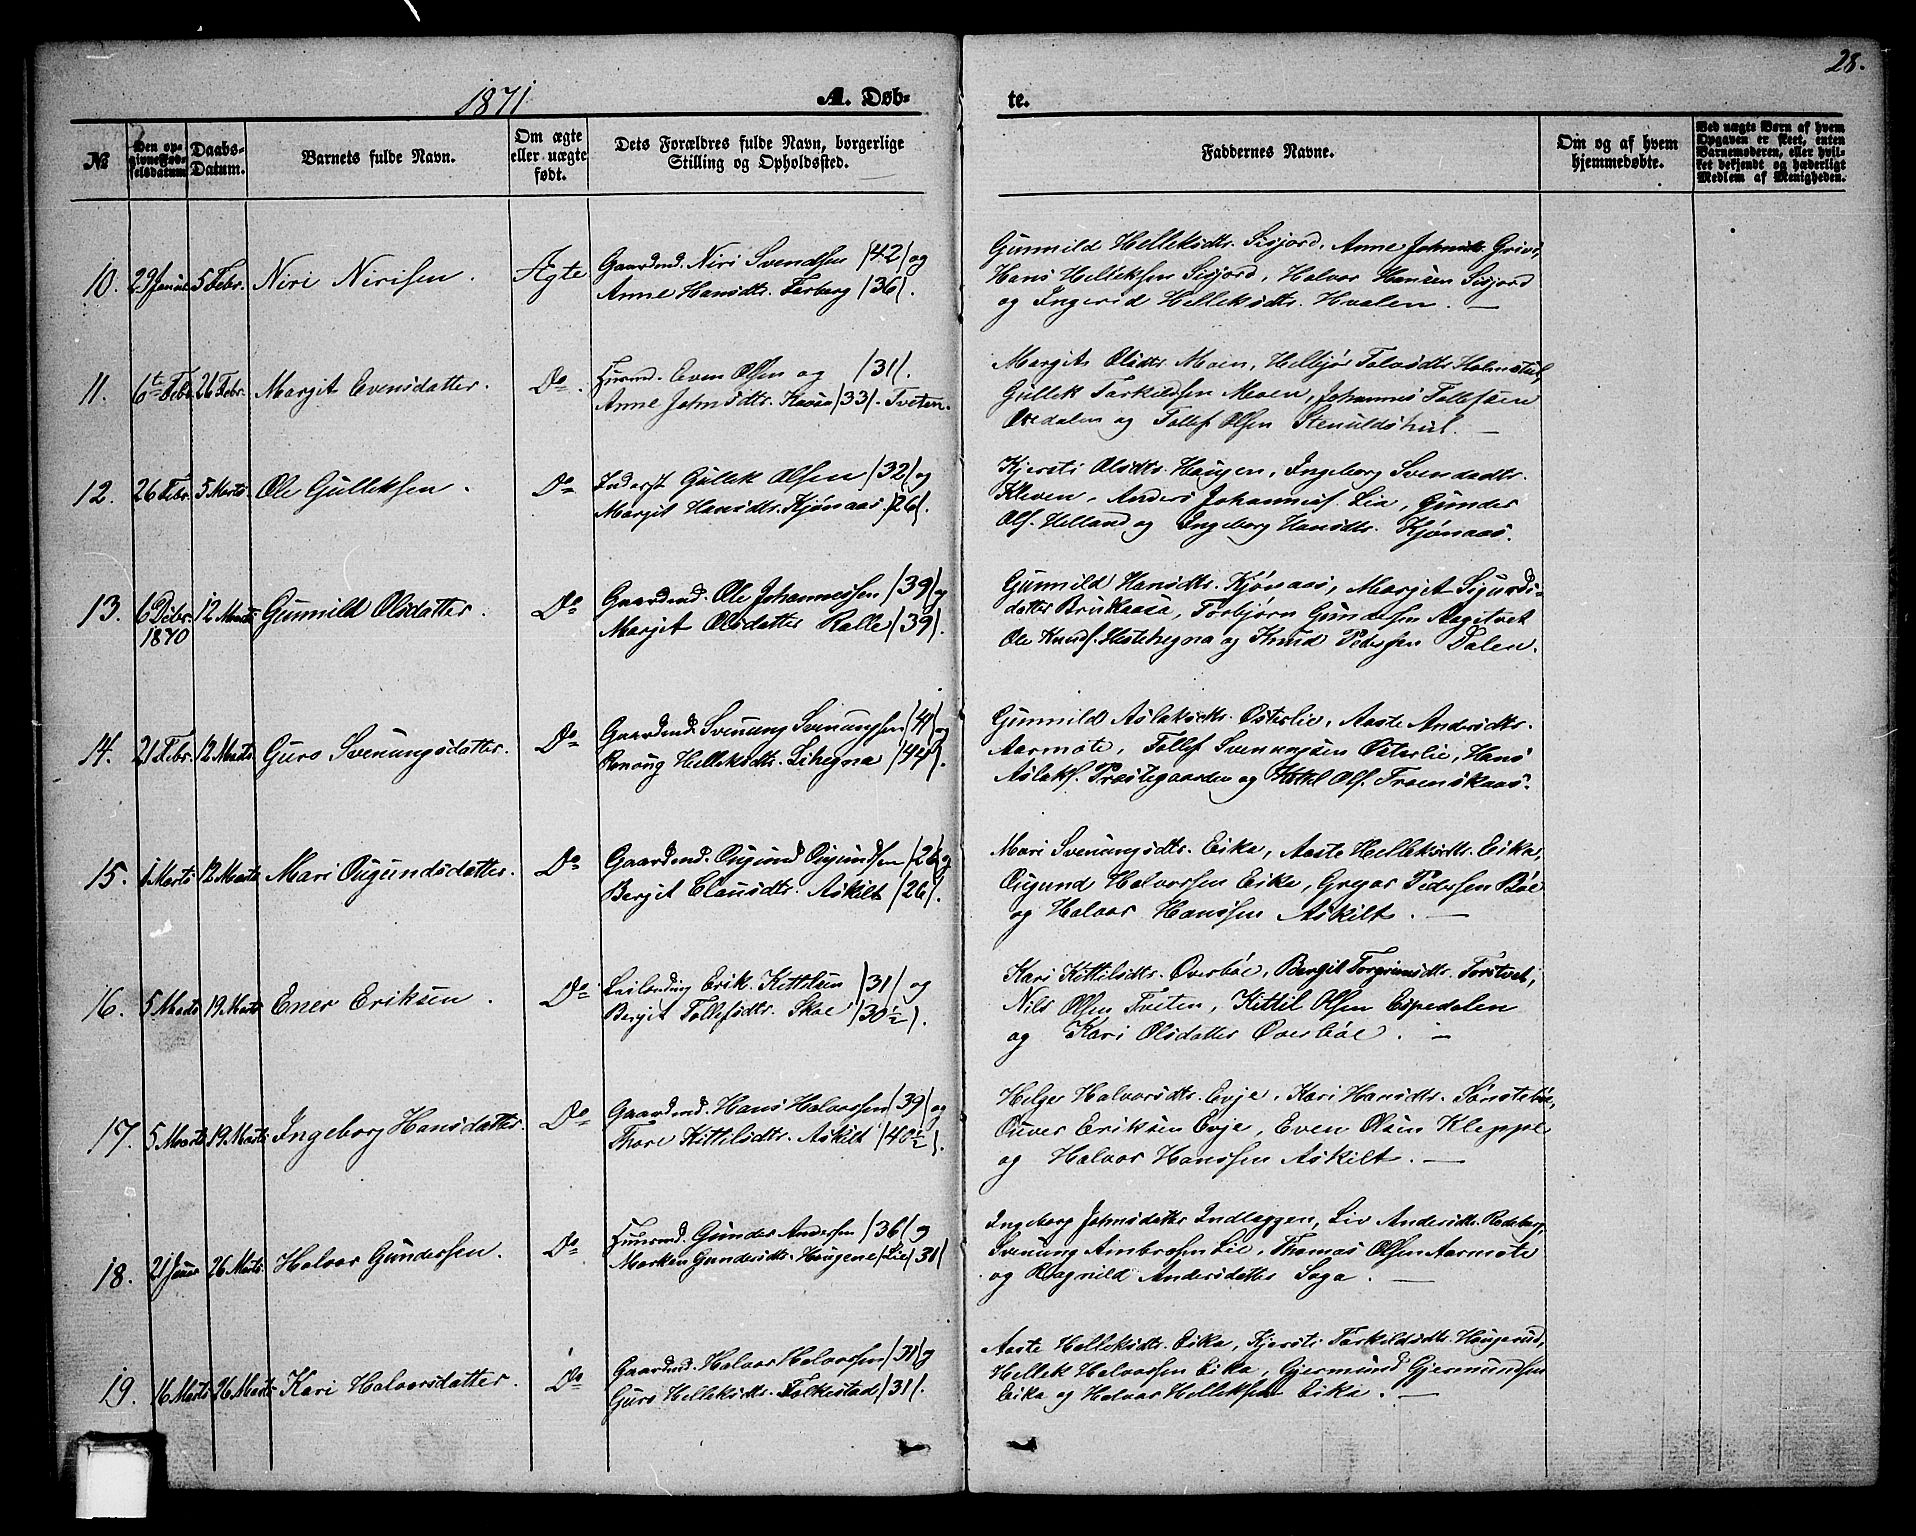 28.
1871
A. Døb-
te.
№
Den op-
givne Fød-
selsdatum
Daabs-
Datum.
Barnets fulde Navn.
Om ægte
eller uægte
født.
Dets Forældres fulde Navn, borgerlige
Stilling og Opholdssted.
Faddernes Navne.
Om og af hvem
hjemmedøbte.
Ved uægte Børn af hvem
Opgaven er skeet, enten
Barnemoderen, eller hvil-
ket bekjendt og hæderligt
Medlem af Menigheden.
10. 29 Januar 5 Febr. Niri Nirisen. Ægte
Gaardmd. Niri Svendsen /42/ og
Anne Hansdtr. Farberg /36/.
Gunnild Helleksdtr. Sisjord, Anne Johnsdtr. Grivi,
Hans Helleksen Sisjord, Halvor Hansen Sisjord
og Ingerid Helleksdtr. Hvalen. —
11. 6te Febr. 26 Febr. Margit Evensdatter. Do.
Husmd. Even Olsen og /31/.
Anne Johnsdtr. Kaasa /33/. Tveten.
Margit Olsdtr. Moen, Helbjør Tovsdtr. Holmstul,
Gullek Tarkildsen Moen, Johannes Tollefsen
Ovedalen og Tollef Olsen Stenuldshul. —
12. 26 Febr. 5 Marts. Ole Gulleksen. Do
Inderst Gullek Olsen /32/ og
Margit Hansdtr. Kjønaas /26/.
Kjersti Olsdtr. Haugen, Ingeborg Svendsdtr.
Kleven, Anders Johannesf. Lia, Gunder
Olf. Helland og Ingeborg Hansdtr. Kjønaas.
13. 6 Debr. 1870 12 Marts Gunnild Olsdatter. Do
Gaardmd. Ole Johannessen /39/ og
Margit Olsdatter Kalle /39/.
Gunnild Hansdtr. Kjønaas, Margit Sigurds-
datter Brukaasa, Torbjørn Gundersen Aagitvet
Ole Knudf. Hestehegna og Knud Pedersen Dalen.
14. 21 Febr. 12 Marts Guro Svenungsdatter. Do
Gaardmd. Svenung Svenungsen /41/ og
Rønnug Helleksdtr. Lihegna /44/.
Gunnild Aslaksdtr. Østerlie, Aaste Andersdtr.
Aarmote, Tollef Svenungsen Østerlie, Hans
Aslakf. Præstegaarden og Kittil Olf. Træmskaas.
15. 1 Marts 12 Marts Mari Øugundsdatter. Do
Gaardmd. Øugund Øugundsen /28/ og
Bergit Clausdtr. Askilt /26/.
Mari Svenungsdtr. Eika, Aaste Helleksdtr. Eika,
Øugund Halvorsen Eika, Gregar Pedersen Bøe
og Halvor Hanssen Askilt. —
16. 5 Marts 19 Marts Ener Eriksen. Do
Leilending Erik Kittilsen /31/ og
Bergit Tollefsdtr. Skoe /30½/.
Kari Kittilsdtr. Overbøe, Bergit Torgrimsdtr. Torstvet,
Nils Olsen Tveten, Kittil Olsen Espedalen
og Kari Olsdatter Overbøe. —
17. 5 Marts 19 Marts Ingeborg Hansdatter. Do
Gaardmd. Hans Halvorsen /39/ og
Thore Kittilsdtr. Askilt /40½/.
Helger Halvorsdtr. Evje, Kari Hansdtr. Sønstebøe,
Ouver Eriksen Evje, Even Olsen Kleppe
og Halvor Hanssen Askilt. —
18. 21 Januar 26 Marts Halvor Gundersen. Do
Husmd. Gunder Andersen /36/ og
Marken Gundersdtr. Haugene /Lie/ 31/
Ingeborg Johnsdatter Indlæggen, Liv Andersdtr. Rodeberg,
Svenung Ambrosen Lie, Thomas Olsen Aarmote
og Ragnild Andersdatter Saga. —
19. 16 Marts 26 Marts Kari Halvorsdatter. Do
Gaardmd. Halvor Halvorsen /31/ og
Guro Helleksdtr. Folkestad /31/.
Aaste Helleksdtr. Eika, Kjersti Tarkildsdtr. Haugerud,
Hellek Halvorssen Eika, Gjermund Gjermundsen
Eika og Halvor Helleksen Eika. —